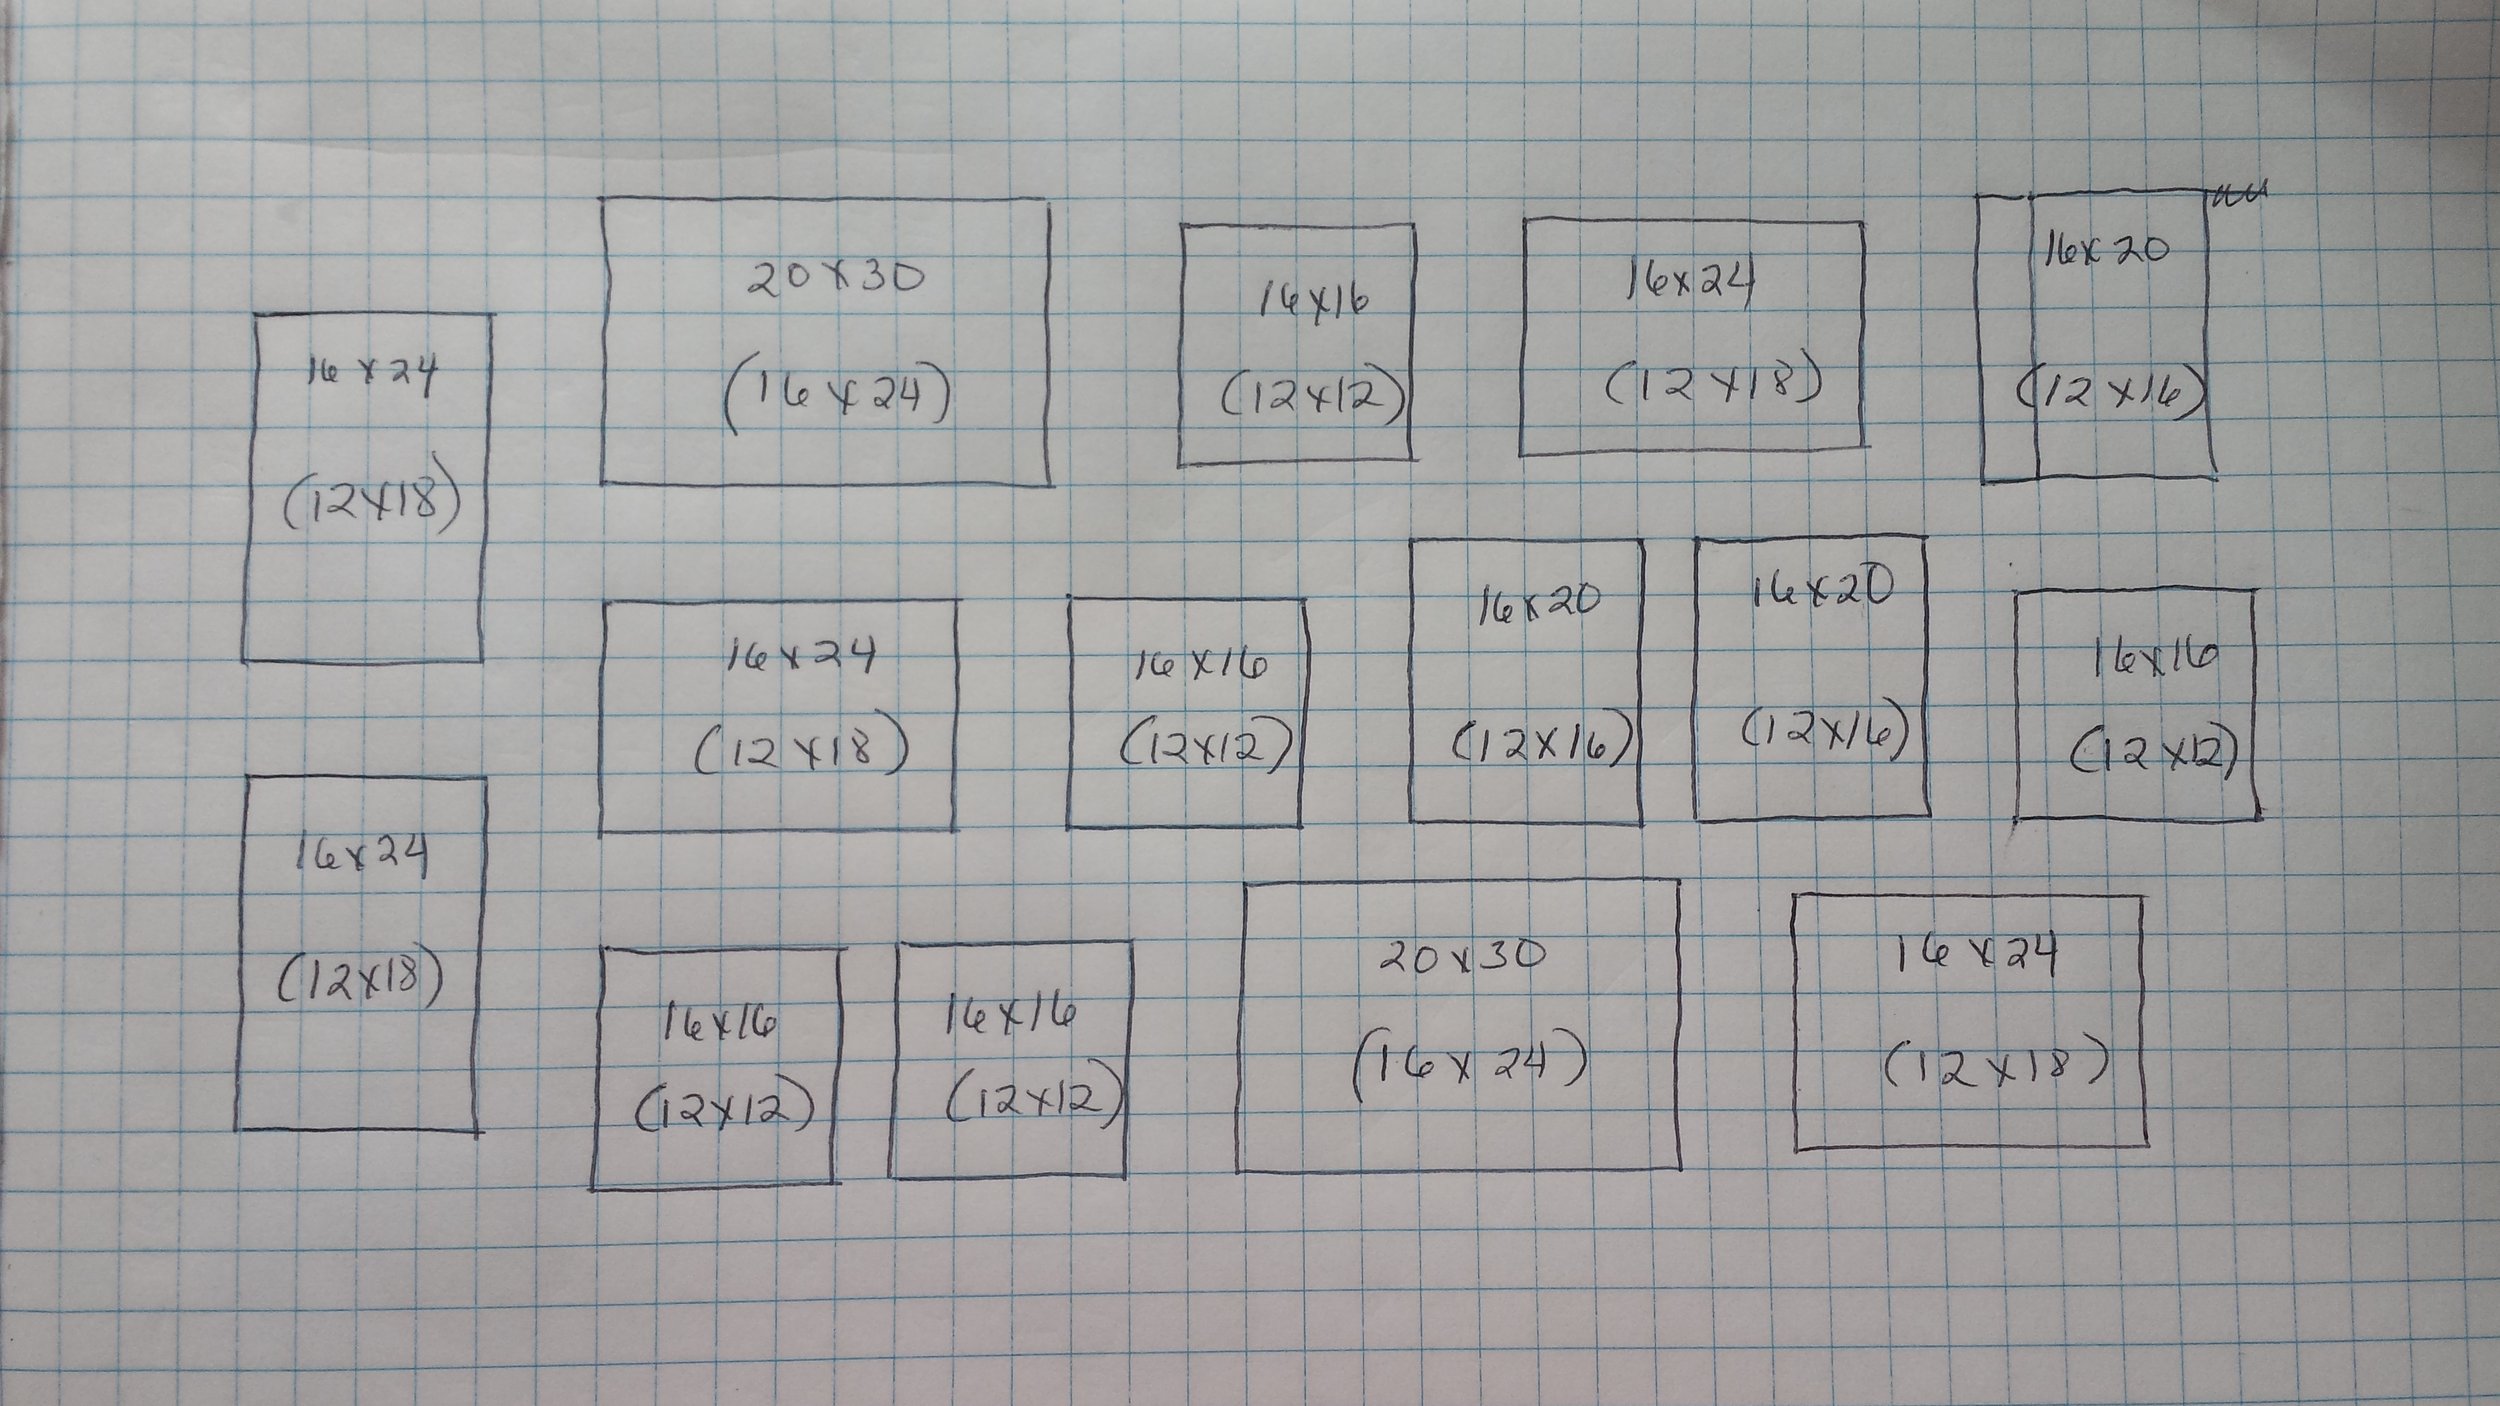 16 x 24
(12 x 18)
20 x 30
(16 x 24)
16 x 16
(12 x 12)
16 x 24
(12 x 18)
16 x 20
(12 x 16)
16 x 24
(12 x 18)
16 x 16
(12 x 12)
16 x 20
(12 x 16)
16 x 20
(12 x 16)
16 x 16
(12 x 12)
16 x 24
(12 x 18)
16 x 16
(12 x 12)
16 x 16
(12 x 12)
20 x 30
(16 x 24)
16 x 24
(12 x 18)